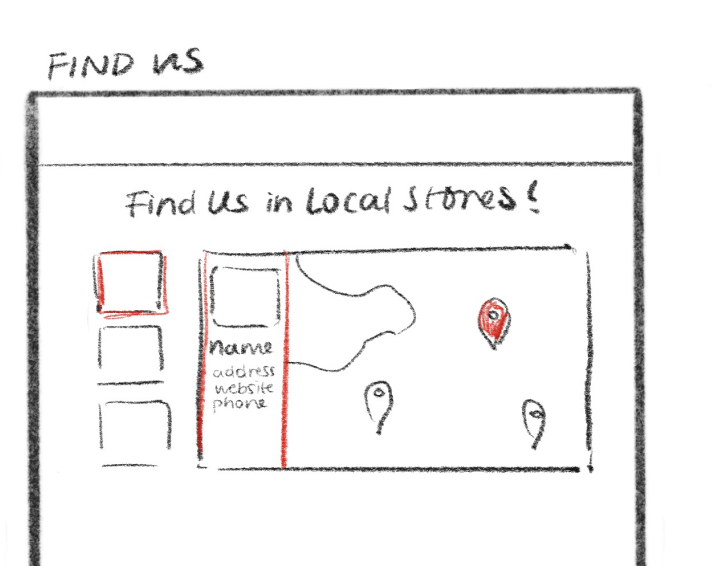 FIND US
Find Us in Local Stores!
name
address
website
phone